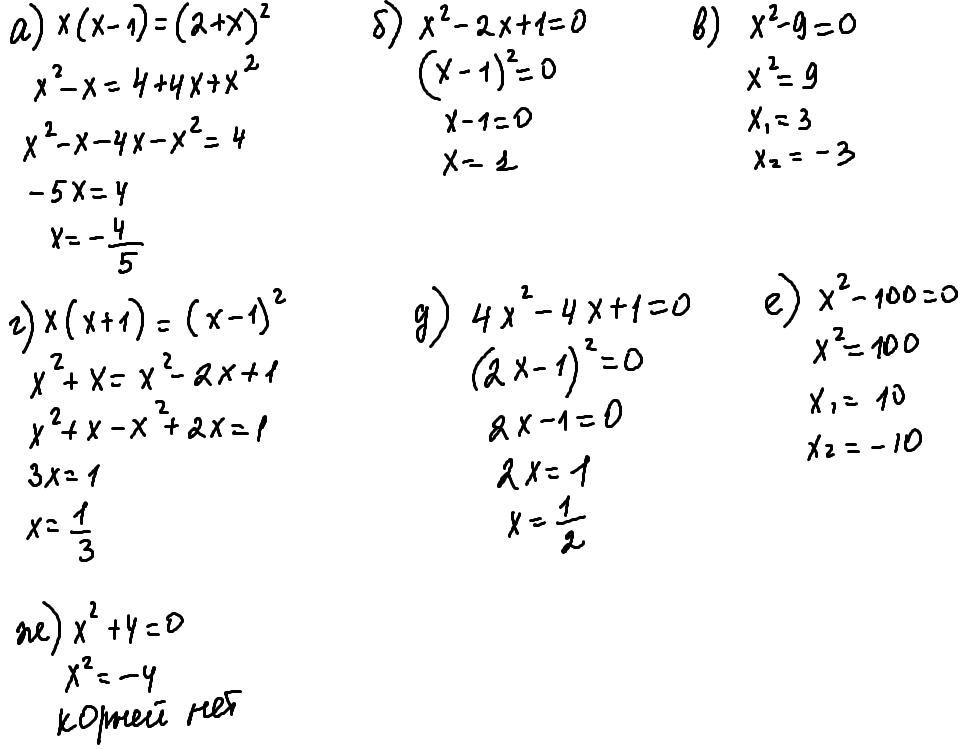 а) x(x-1)=(2+x)²
x²-x=4+4x+x²
x²-x-4x-x²=4
-5x=4
x=-4/5
б) x²-2x+1=0
(x-1)²=0
x-1=0
x=1
в) x²-9=0
x²=9
x₁=3
x₂=-3
г) x(x+1)=(x-1)²
x²+x=x²-2x+1
x²+x-x²+2x=1
3x=1
x=1/3
д) 4x²-4x+1=0
(2x-1)²=0
2x-1=0
2x=1
x=1/2
е) x²-100=0
x²=100
x₁=10
x₂=-10
ж) x²+4=0
x²=-4
корней нет